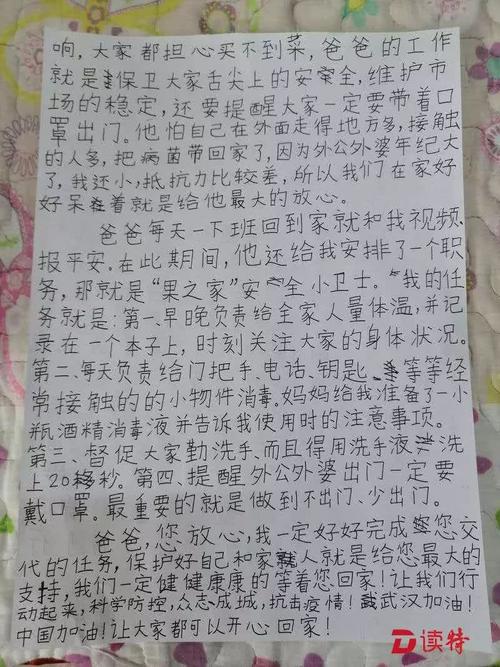 响,大家都担心买不到菜,爸爸的工作
就是保卫大家舌尖上的安全,维护市
场的稳定,还要提醒大家一定要带着口
罩出门。他怕自己在外面走得地方多,接触
的人多,把病菌带回家了,因为外公外婆年纪大
了,我还小,抵抗力比较差,所以我们在家好
好呆着就是给他最大的放心。
爸爸每天一下班回到家就和我视频,
报平安。在此期间,他还给我安排了一个职
务,那就是“果之家”安全小卫士。“我的任
务就是:第一、早晚负责给全家人量体温,并记
录在一个本子上,时刻关注大家的身体状况。
第二、每天负责给门把手、电话、钥匙等等经
常接触的的小物件消毒。妈妈给我准备了一小
瓶酒精消毒液并告诉我使用时的注意事项。
第三、督促大家勤洗手、而且得用洗手液洗
上20多秒。第四、提醒外公外婆出门一定要
戴口罩。最重要的就是做到不出门、少出门。
爸爸,您放心,我一定好好完成您交
代的任务,保护好自己和家人就是给您最大的
支持,我们一定健健康康的等着您回家!让我们行
动起来,科学防控,众志成城,抗击疫情!武汉加油!
中国加油!让大家都可以开心回家!
读特